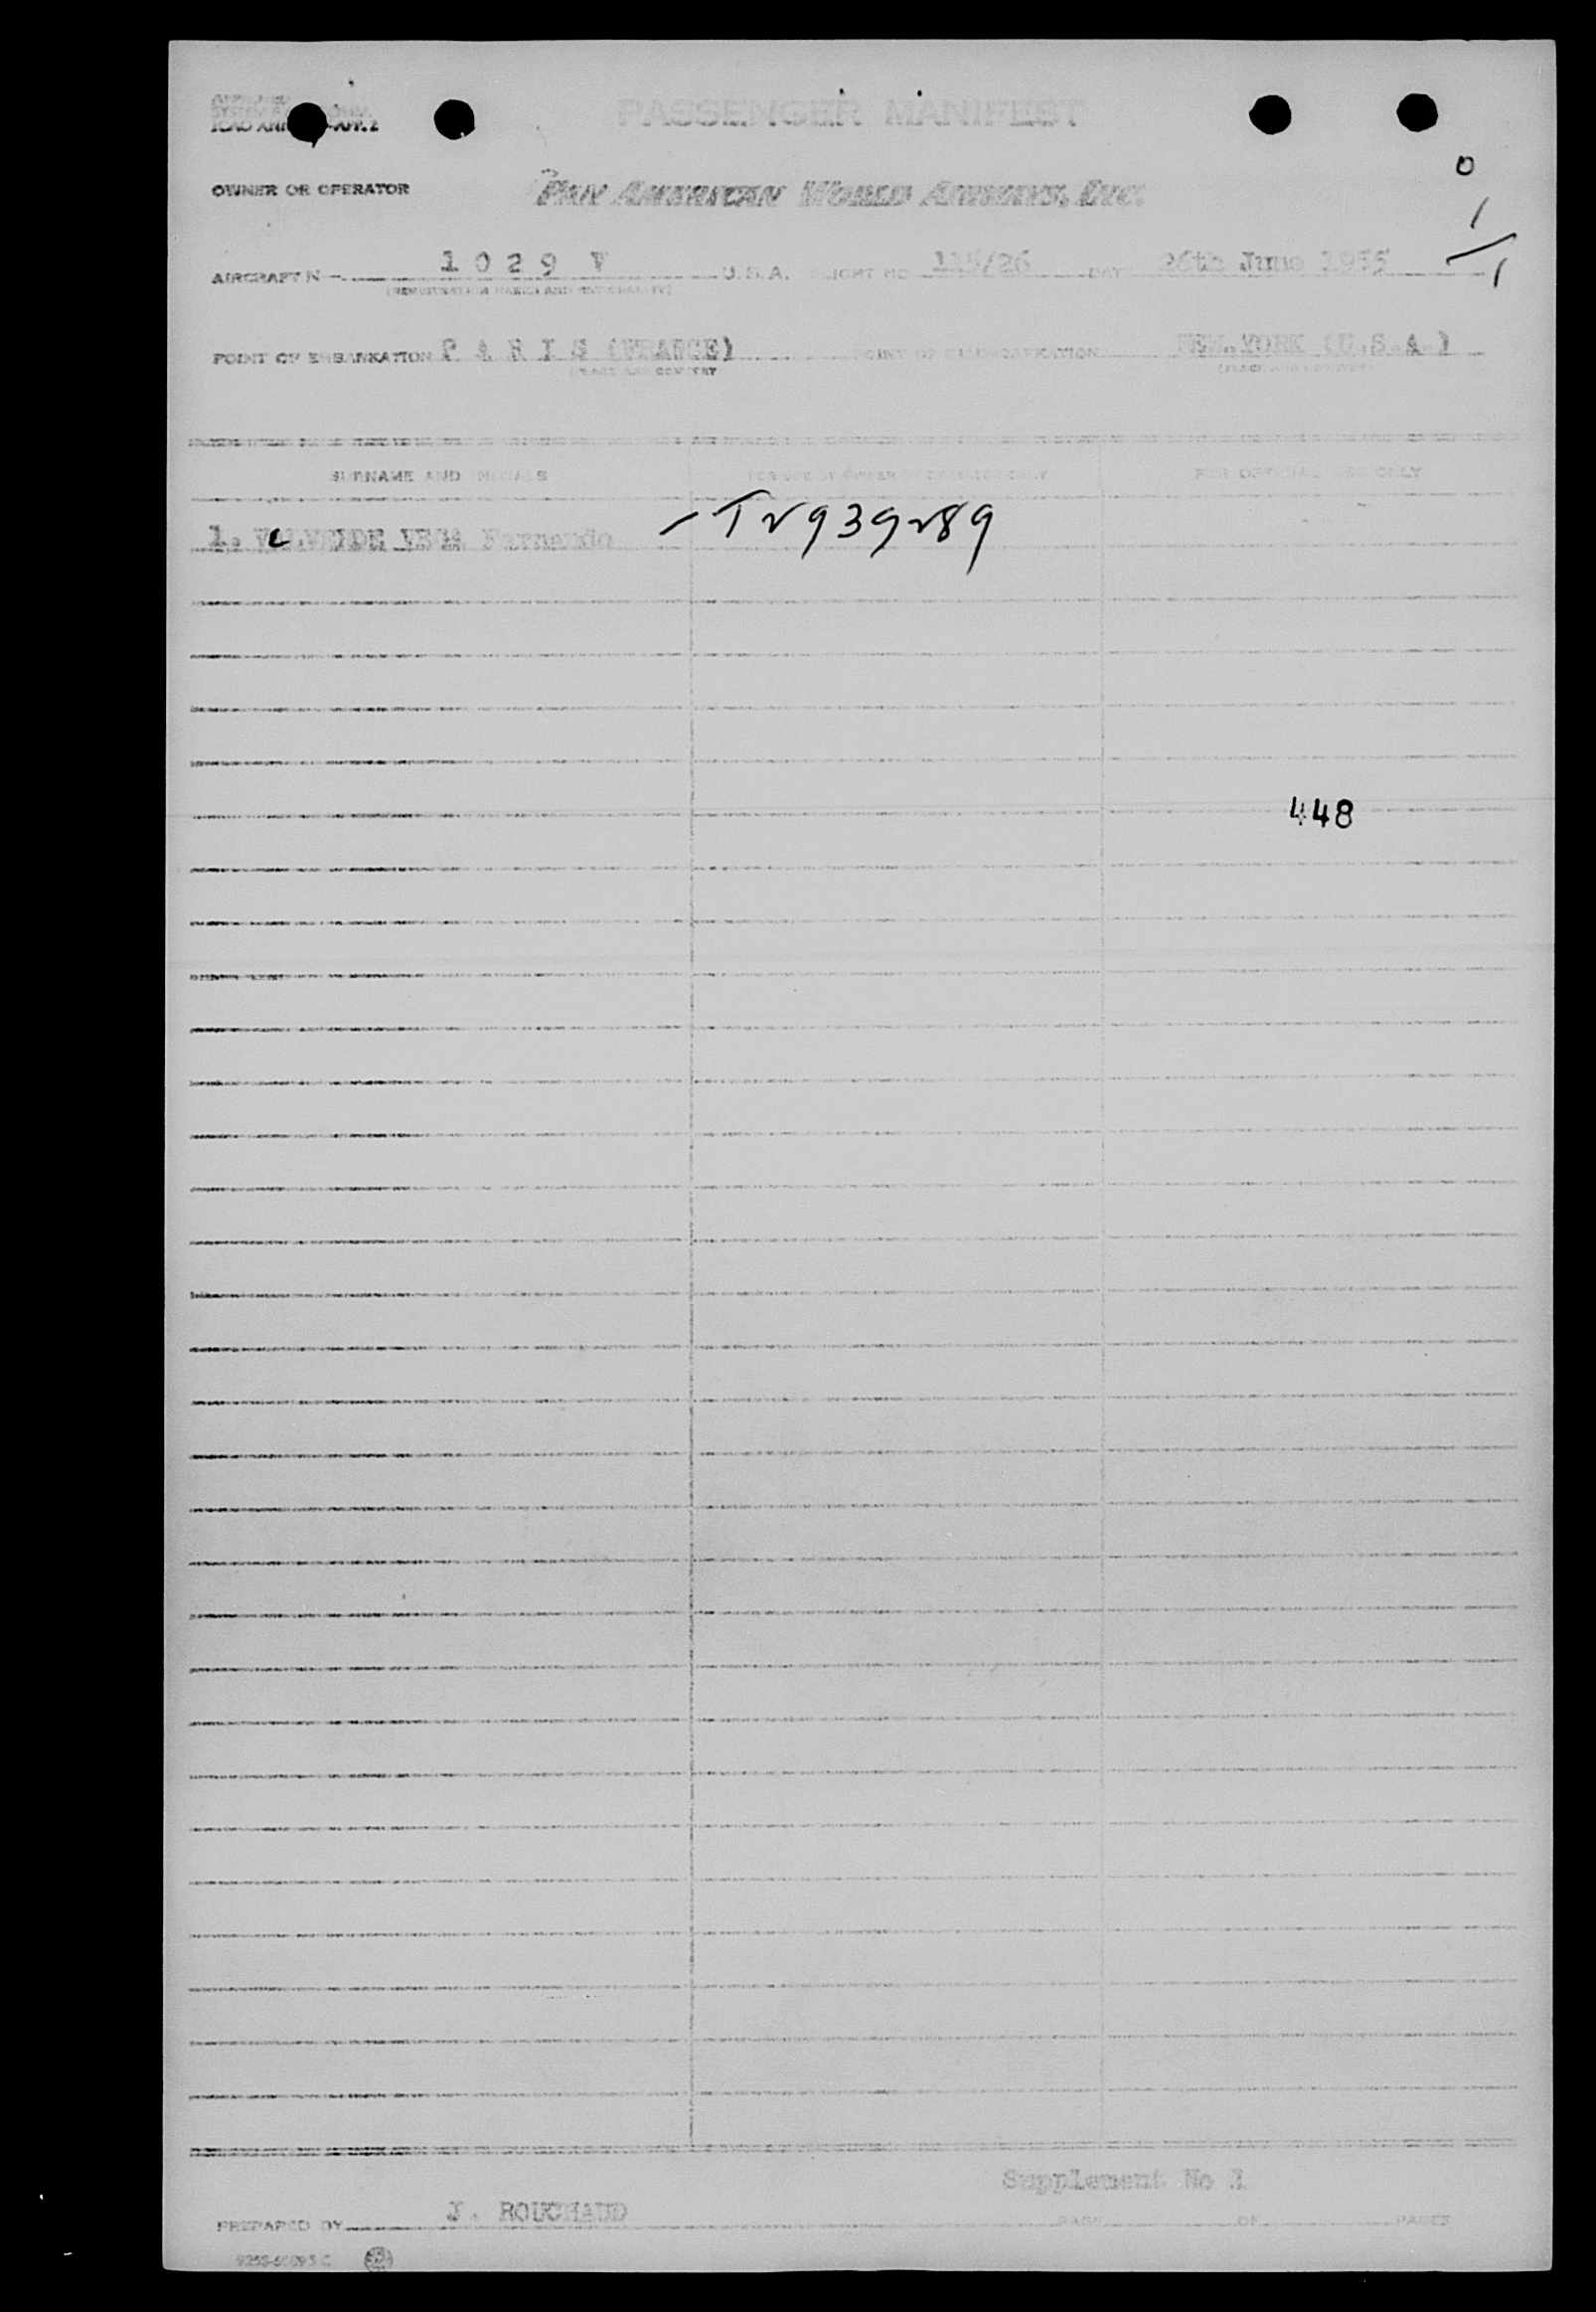 PASSENGER MANIFEST
OWNER OR OPERATOR PAN AMERICAN WORLD AIRWAYS, INC.
0
1
1
AIRCRAFT N - 1029 V U.S.A. FLIGHT NO 115/26 DAY 26th June 1955
(REGISTRATION MARKS AND NATIONALITY)
POINT OF EMBARKATION P A R I S (FRANCE) POINT OF DISEMBARKATION NEW.YORK (U.S.A.)
(PLACE AND COUNTRY (PLACE AND COUNTRY)
SURNAME AND INITIALS FOR USE BY OWNER OR OPERATOR ONLY FOR OFFICIAL USE ONLY
1. VALVERDE VEGA Fernando - T2939289
448
Supplement No
PREPARED BY J. ROUCHAUD PAGE OF PAGES